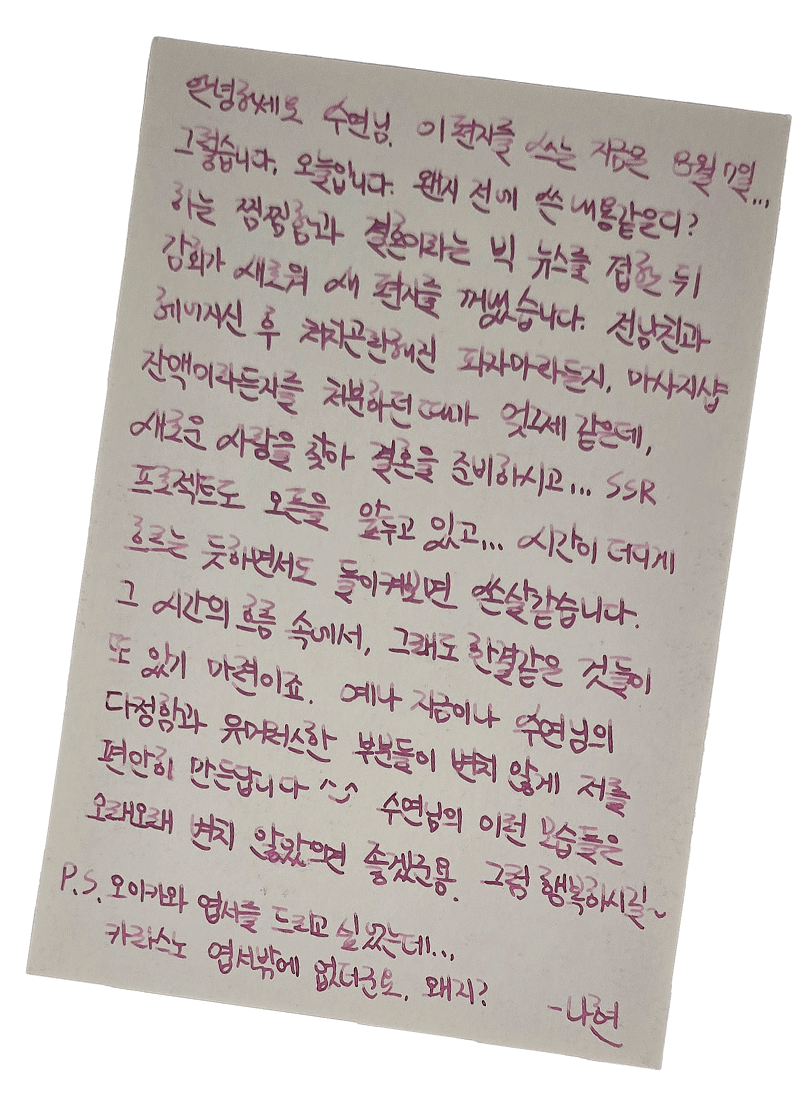 안녕하세요 수연님. 이 편지를 쓰는 지금은 8월 7일...
그렇습니다. 오늘입니다. 왠지 전에 쓴 내용같은디?
하는 찜찜함과 결혼이라는 빅 뉴스를 접한 뒤
감회가 새로워 새 편지를 꺼냈습니다. 전남친과
헤어지신 후 처치곤란해진 파자마라든지, 마사지샵
잔액이라든지를 처분하던 때가 엊그제 같은데,
새로운 사랑을 찾아 결혼을 준비하시고... SSR
프로젝트도 오픈을 앞두고 있고... 시간이 더디게
흐르는 듯하면서도 돌이켜보면 쏜살같습니다.
그 시간의 흐름 속에서, 그래도 한결같은 것들이
또 있기 마련이죠. 예나 지금이나 수연님의
다정함과 유머러스한 부분들이 변치 않게 저를
편안히 만든답니다 ^^ 수연님의 이런 모습들은
오래오래 변치 않았으면 좋겠군용. 그럼 행복하시길~
P.S. 오이카와 엽서를 드리고 싶었는데...
카라스노 엽서밖에 없더군요. 왜지?
-나현